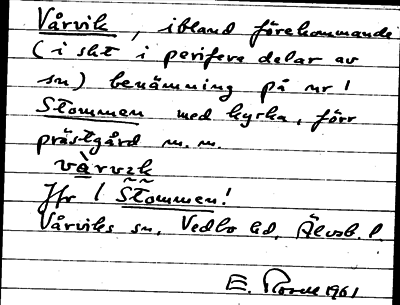 Vårvik, ibland förekommande
(i sht i perifera delar av
sn) benämning på nr 1
Stommen med kyrka, förr
prästgård m.m.
vàrvɩk
Jfr 1 Stommen!
Vårviks sn, Vedbo hd, Älvsb. l.
E. 1961